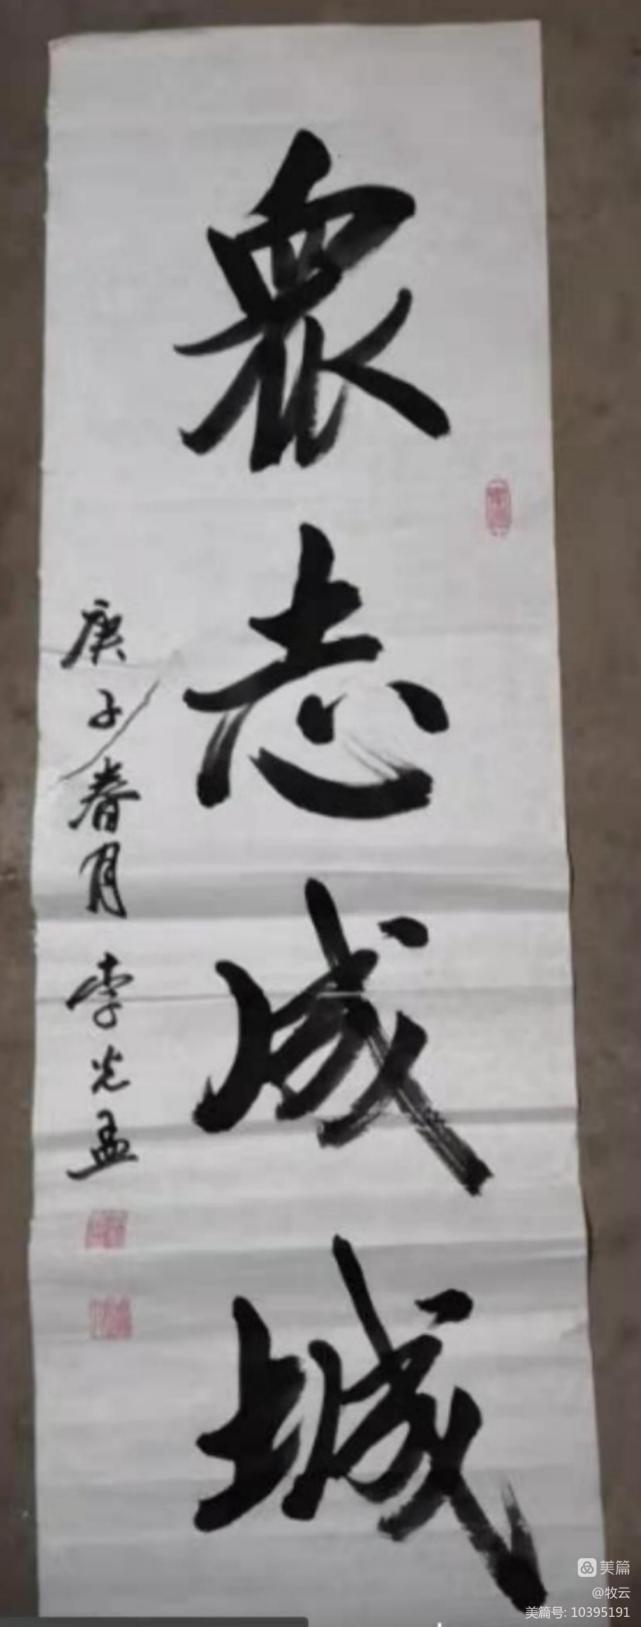 眾志成城
庚子春月李光孟
美篇
@牧云
美篇号: 10395191